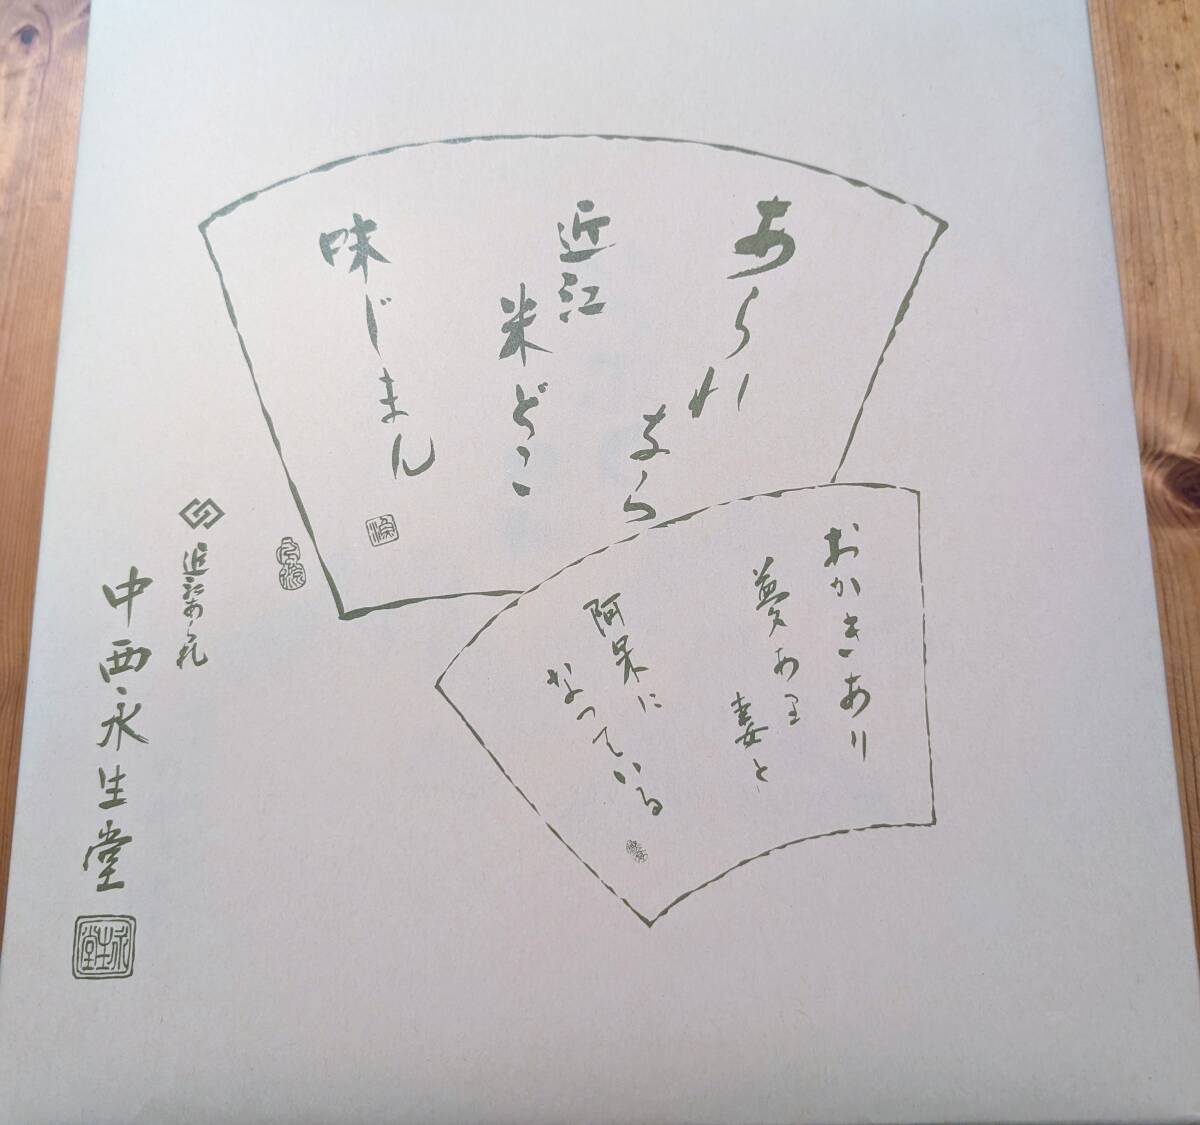 あられ
なら
近江
米どこ
味じまん
おかきあり
夢あり
妻と
阿呆に
なっている
近江あられ
中西永生堂
永生堂